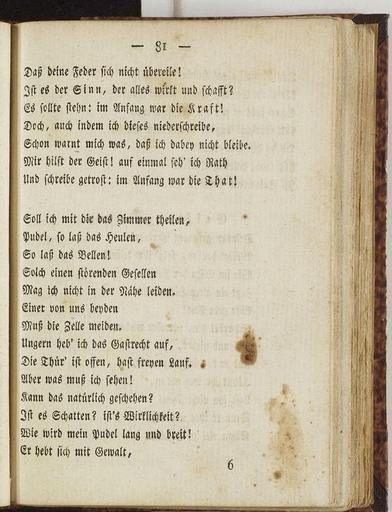 — 81 —
Daß deine Feder sich nicht übereile!
Ist es der Sinn, der alles wirkt und schafft?
Es sollte stehn: im Anfang war die Kraft!
Doch, auch indem ich dieses niederschreibe,
Schon warnt mich was, daß ich dabey nicht bleibe.
Mir hilft der Geist! auf einmal seh' ich Rath
Und schreibe getrost: im Anfang war die That!
Soll ich mit dir das Zimmer theilen,
Pudel, so laß das Heulen,
So laß das Bellen!
Solch einen störenden Gesellen
Mag ich nicht in der Nähe leiden.
Einer von uns beyden
Muß die Zelle meiden.
Ungern heb' ich das Gastrecht auf,
Die Thür' ist offen, hast freyen Lauf.
Aber was muß ich sehen!
Kann das natürlich geschehen?
Ist es Schatten? ist's Wirklichkeit?
Wie wird mein Pudel lang und breit!
Er hebt sich mit Gewalt,
6